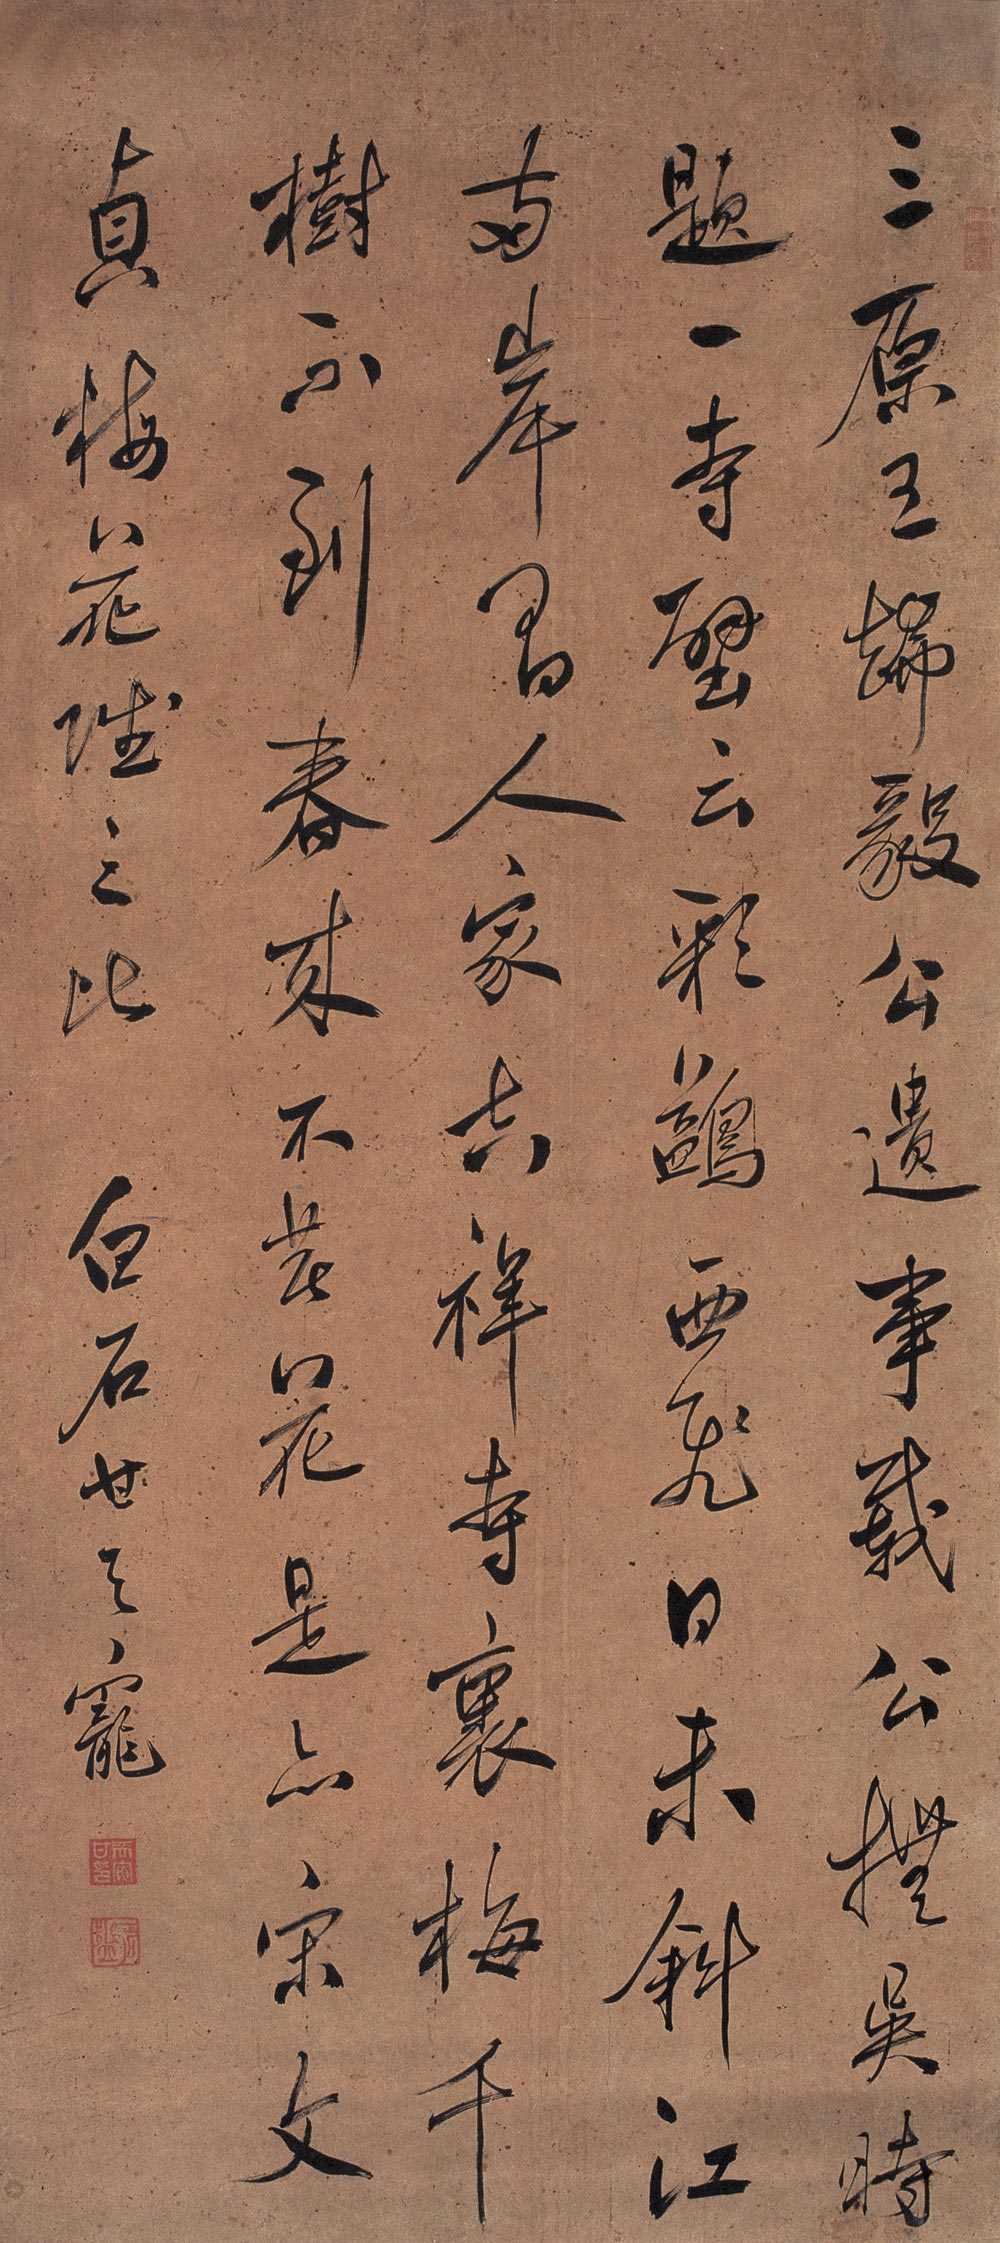 三原王端毅公遺事載公撫吳時
題一寺壁云彩鷁西飛日未斜江
兩岸人家吉祥寺裏梅千
樹不到春來不著花是亦宋文
貞梅花賦之比 白石